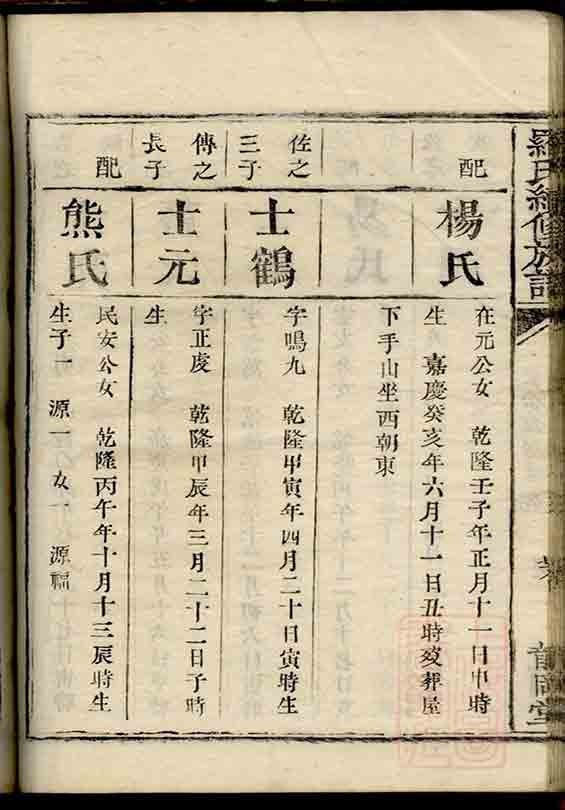 羅氏續修族譜
配
楊氏
在元公女 乾隆壬子年正月十一日申時
生 嘉慶癸亥年六月十一日丑時歿葬屋
下手山坐西朝東
佐之
三子
士鶴
字鳴九 乾隆甲寅年四月二十日寅時生
傳之
長子
士元
字正虔 乾隆甲辰年三月二十二日子時
生
配
熊氏
民安公女 乾隆丙午年十月十三辰時生
生子一 源一 女一 源福